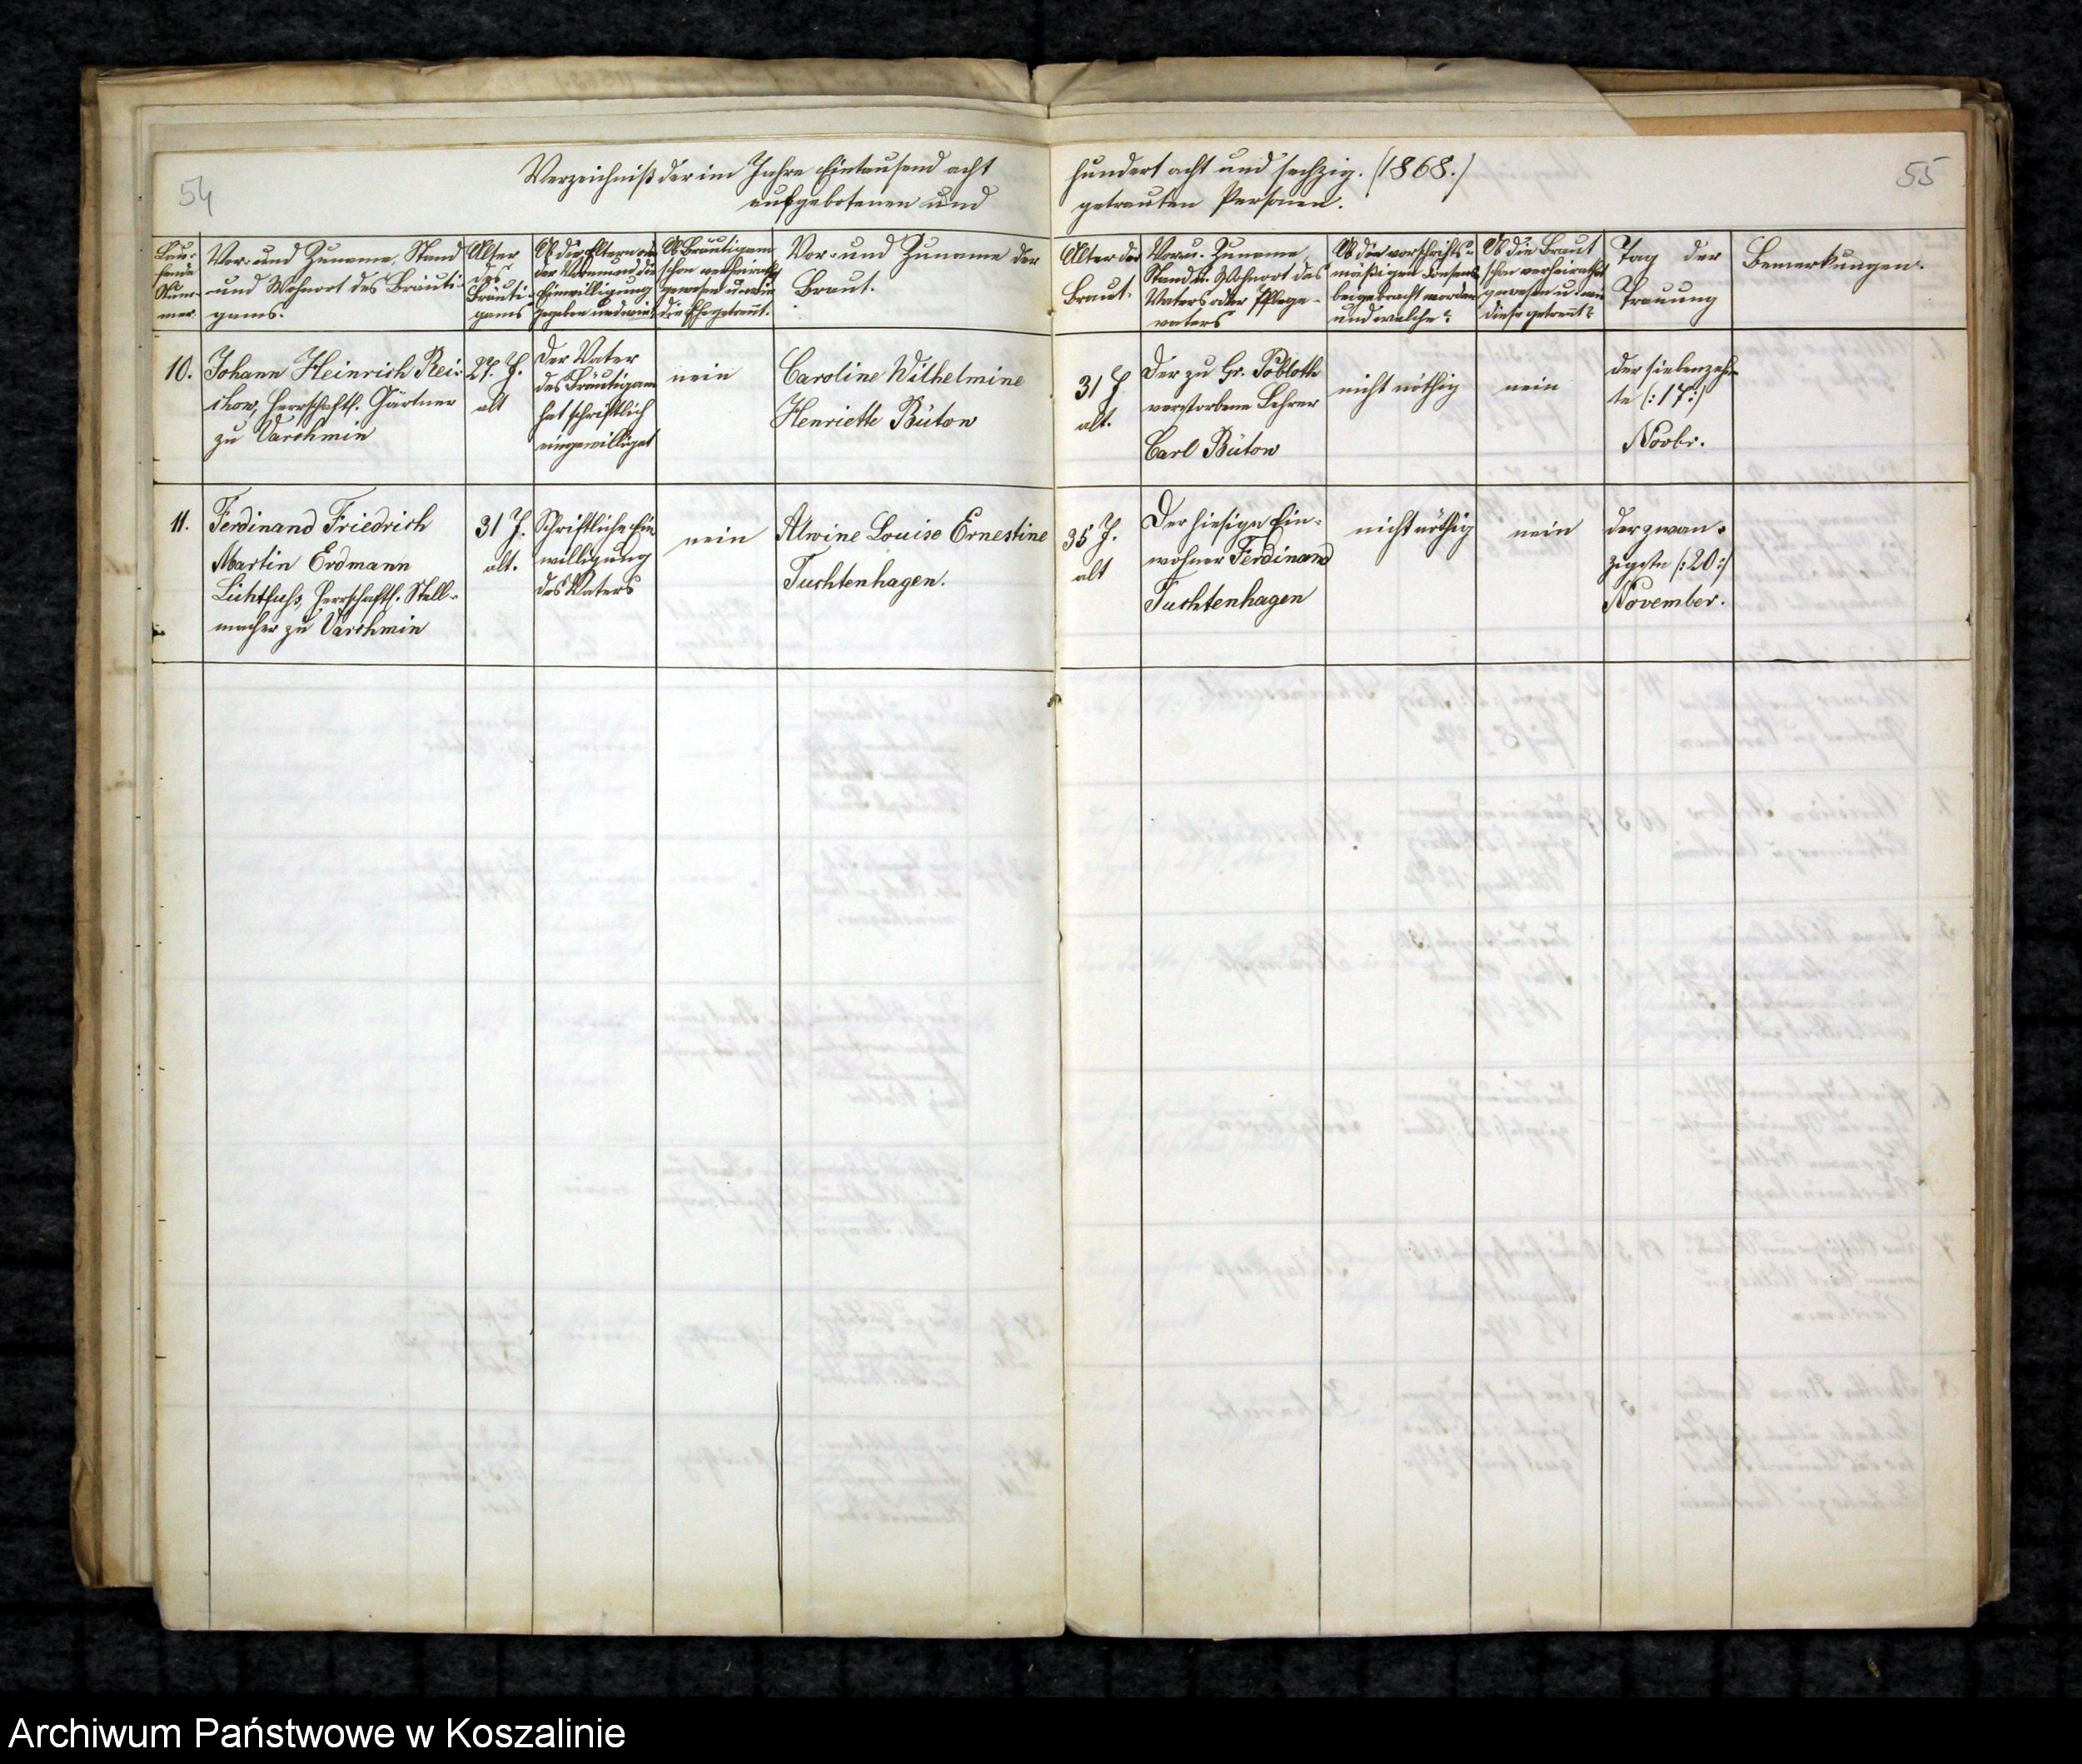 54
Verzeichniß der im Jahre Eintausend acht
aufgebotenen und
hundert acht und sechzig. (1868.)
getrauten Personen.
55
Lau-
fende
Num-
mer.
Vor- und Zuname, Stand
und Wohnort des Bräuti-
gams.
Alter
des
Bräuti-
gams
Ob die Eltern oder
der Vormund die
Einwilligung
gegeben und wie?
Ob Bräutigam
schon verheirathet
gewesen und wie
die Ehe getrennt.
Vor- und Zuname der
Braut.
Alter der
Braut.
Vor- u. Zuname,
Stand u. Wohnort des
Vaters oder Pflege-
vaters
Ob der vorschrifts-
mäßigen Consens
beigebracht worden
und welche?
Ob die Braut
schon verheirathet
gewesen u. wie
diese getrennt?
Tag der
Trauung
Bemerkungen.
10.
Johann Heinrich Rei-
chow, herrschaftl. Gärtner
zu Varchmin
27. J.
alt
Der Vater
des Bräutigam
hat schriftlich
eingewilliget
nein
Caroline Wilhelmine
Henriette Büton
31 J
alt.
Der zu Gr. Pobloth
verstorbene Lehrer
Carl Büton
nicht nöthig
nein
der siebenzehn-
te (: 17 :)
Novbr.
11.
Ferdinand Friedrich
Martin Erdmann
Lichtfuss, herrschaftl. Stell-
macher zu Varchmin
31 J.
alt.
Schriftliche Ein
willigung
des Vaters
nein
Alwine Louise Ernestine
Tuchtenhagen.
35 J.
alt
Der hiesige Ein-
wohner Ferdinand
Tuchtenhagen
nicht nöthig
nein
der zwan-
zigste (: 20 :)
November.
Archiwum Państwowe w Koszalinie